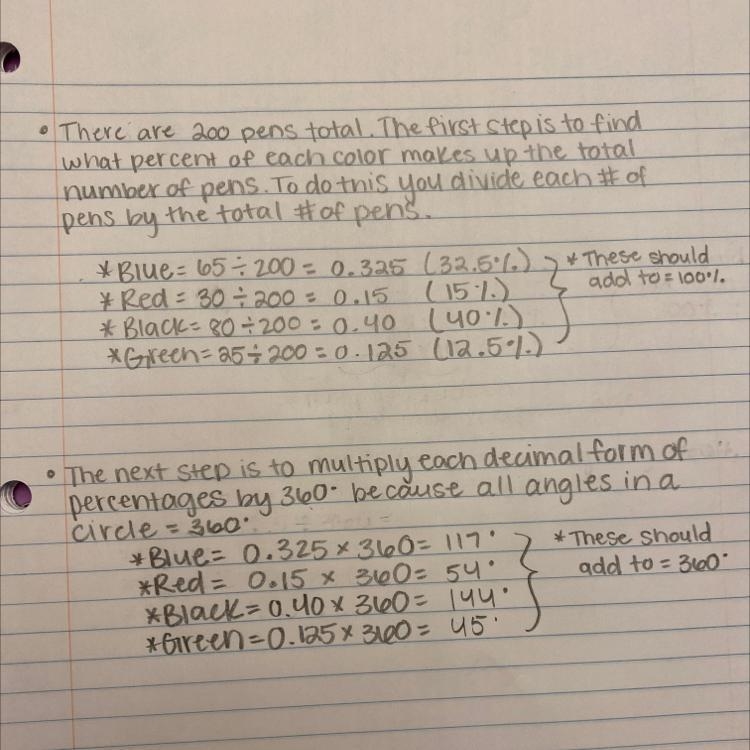 • There are 200 pens total. The first step is to find
what percent of each color makes up the total
number of pens. To do this you divide each # of
pens by the total # of pens.
*Blue = 65 ÷ 200 = 0.325 (32.5%)
*Red = 30 ÷ 200 = 0.15 (15%)
*Black = 80 ÷ 200 = 0.40 (40%)
*Green = 25 ÷ 200 = 0.125 (12.5%)
*These should
add to = 100%
• The next step is to multiply each decimal form of
percentages by 360° because all angles in a
circle = 360°
*Blue = 0.325 × 360 = 117°
*Red = 0.15 × 360 = 54°
*Black = 0.40 × 360 = 144°
*Green = 0.125 × 360 = 45°
*These should
add to = 360°